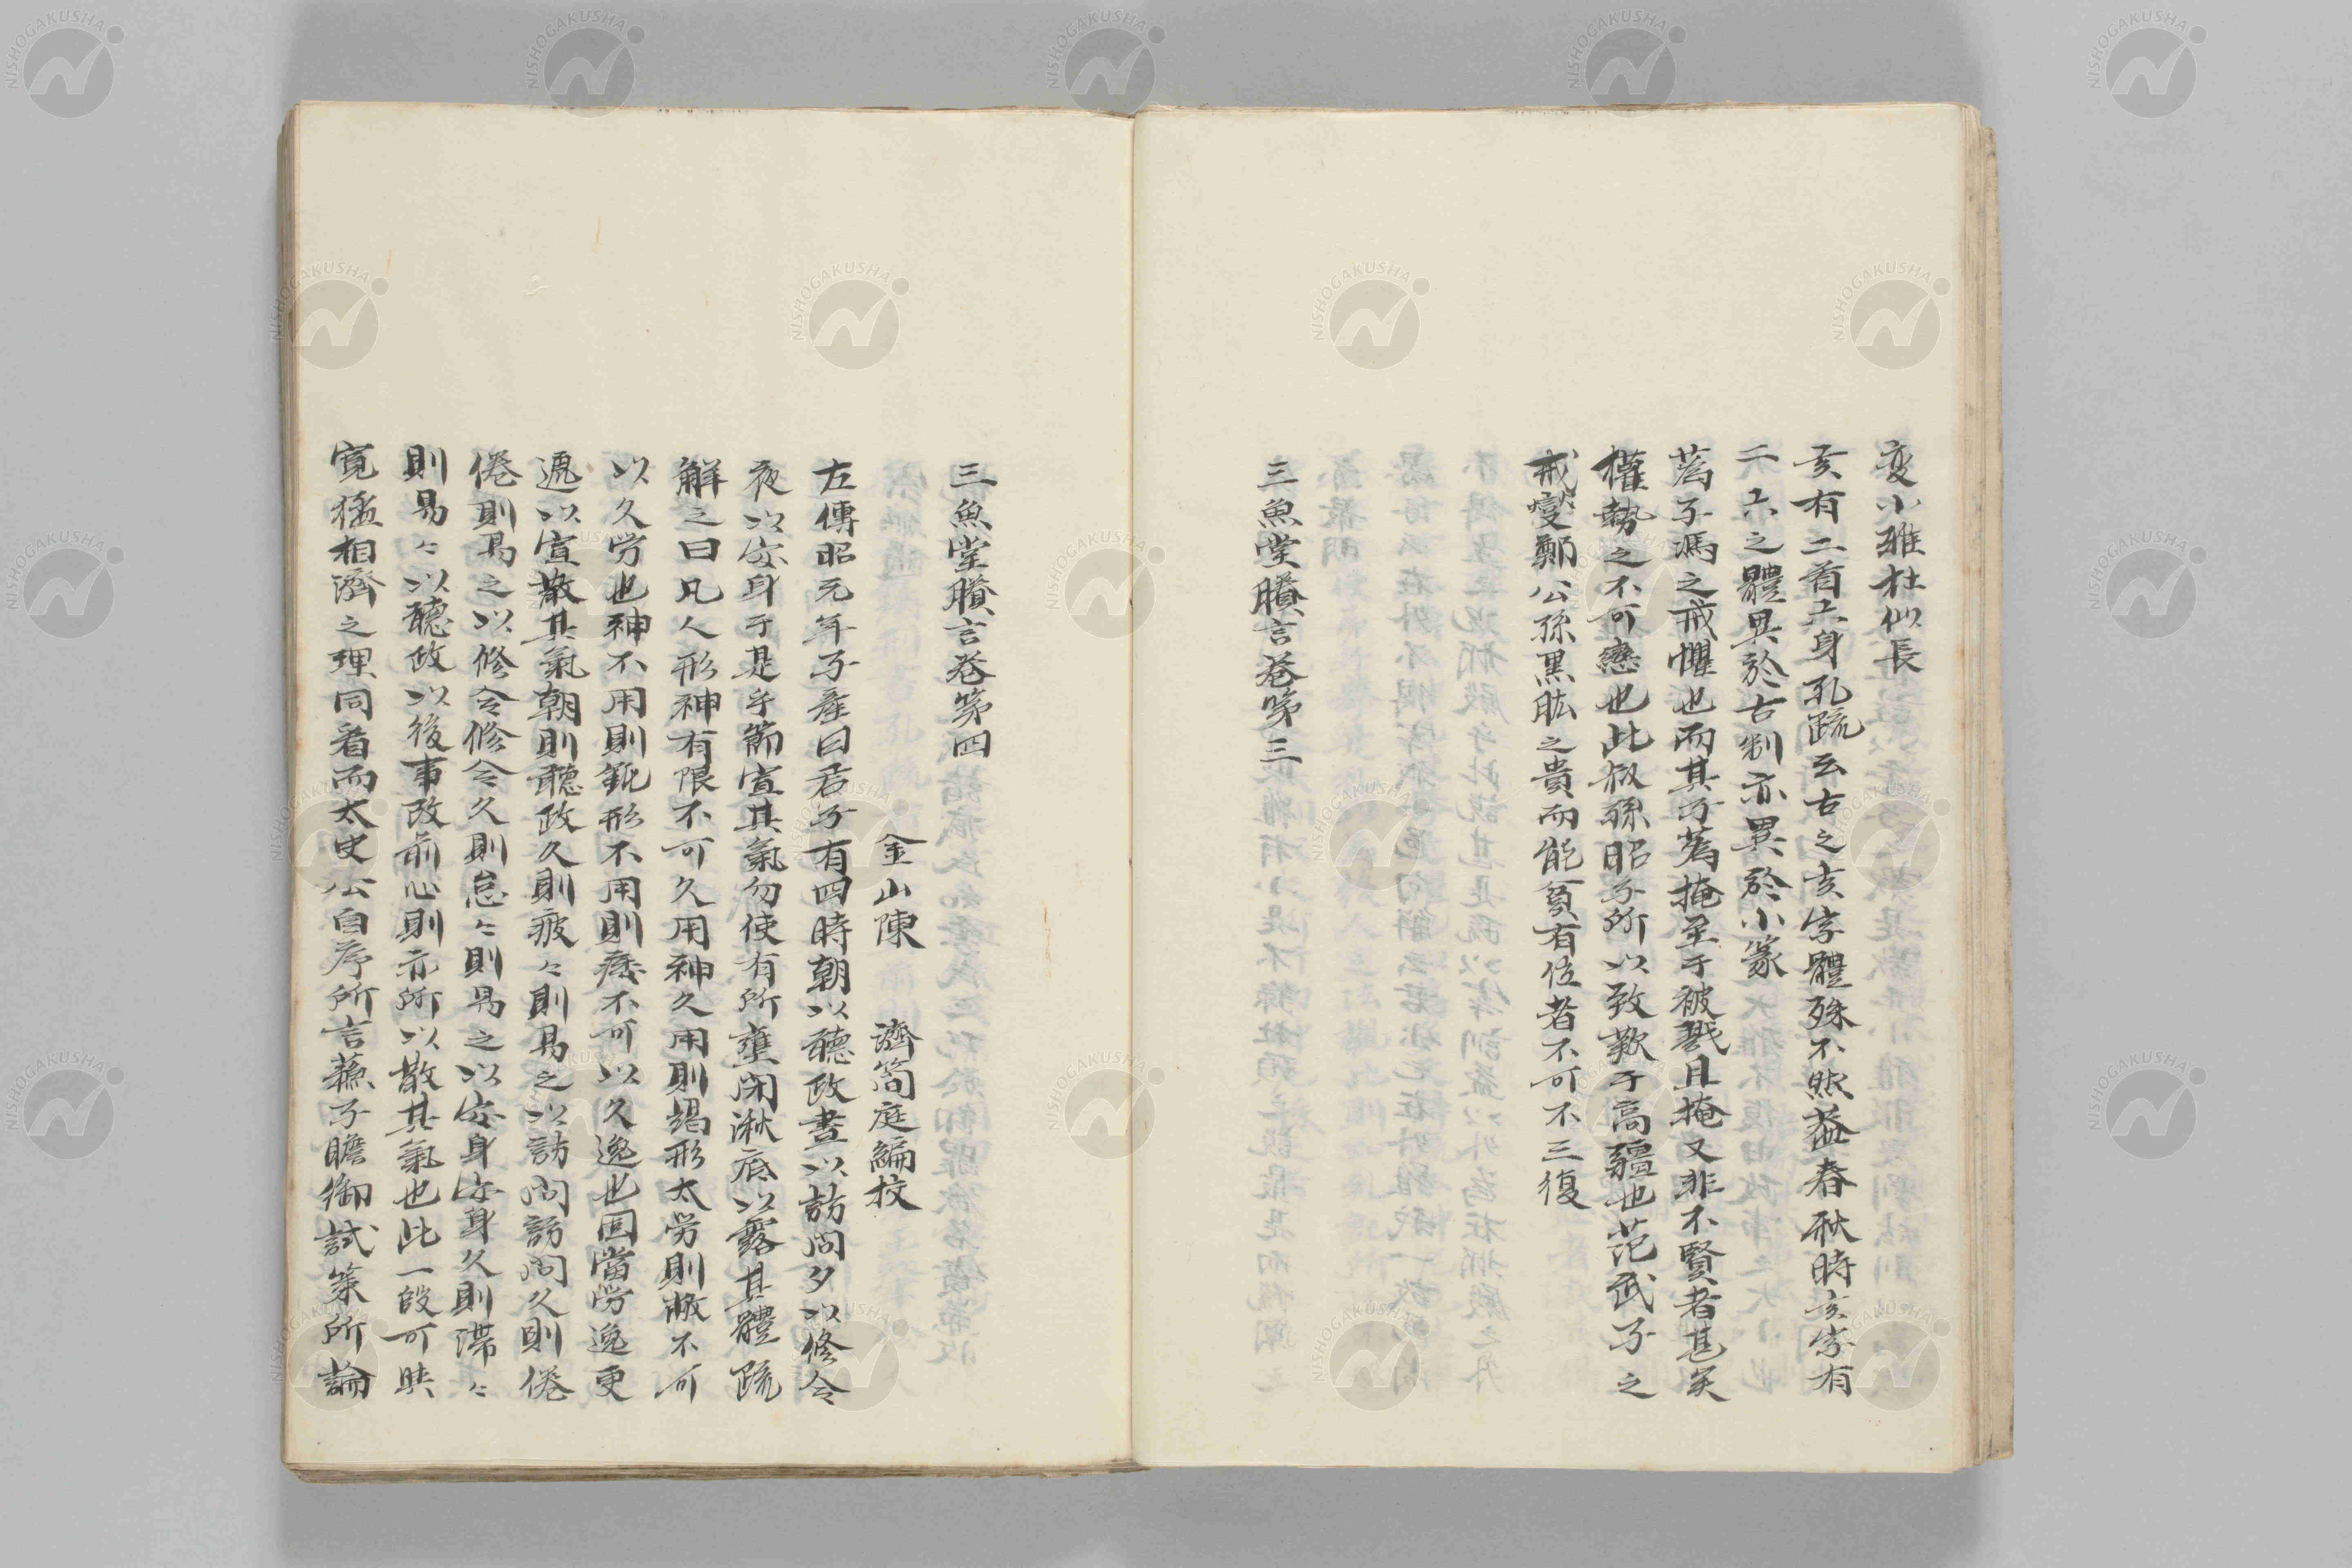 変小雅杜似長
亥有二首六身孔疏云古之亥字體殊不然盖春秋時亥字有
二六之體異於古制亦異於小篆
蒍子馮之戒懼也而其子蒍掩至于被戮且掩又非不賢者甚矣
權勢之不可戀也此叔孫昭子所以致歎于高疆也范武子之
戒燮鄭公孫黒肱之貴而能貧有位者不可不三復
三魚堂賸言巻第三
三魚堂賸言巻第四
金山陳 濟簡庭編校
左傳昭元年子産曰君子有四時朝以聴政晝以訪問夕以修令
夜以安身于是乎節宣其氣勿使有所壅閉湫底以露其體疏
解之曰凡人形神有限不可久用神久用則竭形太勞則敝不可
以久勞也神不用則鈍形不用則痿不可以久逸也固當勞逸更
遞以宣散其氣朝則聴政久則疲〻則易之以訪問訪問久則倦
倦則易之以修令修令久則怠〻則易之以安身安身久則滞〻
則易〻以聴政以後事改前心則亦所以散其氣也此一段可與
寛猛相濟之理同看而太史公自序所言蘇子瞻御試策所論